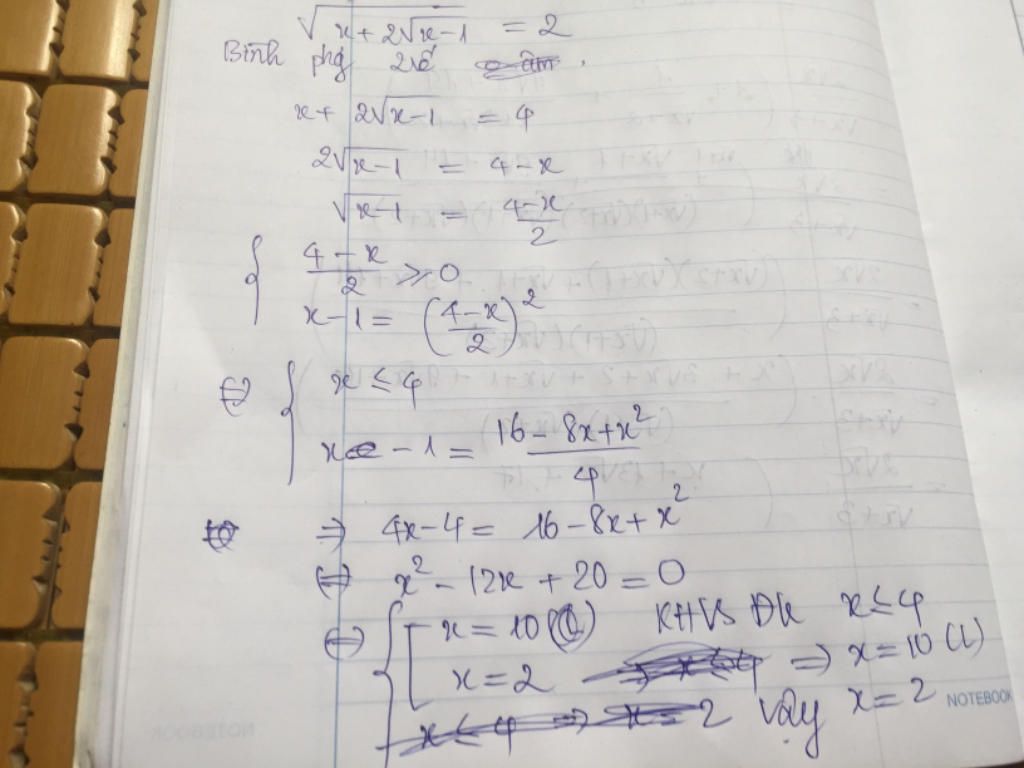 √(x + 2√(x-1)) = 2
Bình phg 2 vế
x + 2√(x-1) = 4
2√(x-1) = 4-x
√(x-1) = (4-x)/2
{ (4-x)/2 ≥ 0
x-1 = ((4-x)/2)²
⇔ { x ≤ 4
x - 1 = (16 - 8x + x²)/4
⇒ 4x - 4 = 16 - 8x + x²
⇔ x² - 12x + 20 = 0
⇔ { [ x = 10 (L) KHVS ĐK x ≤ 4
x = 2 ⇒ x = 10 (L)
x ≤ 4 ⇒ x = 2 Vậy x = 2
NOTEBOOK